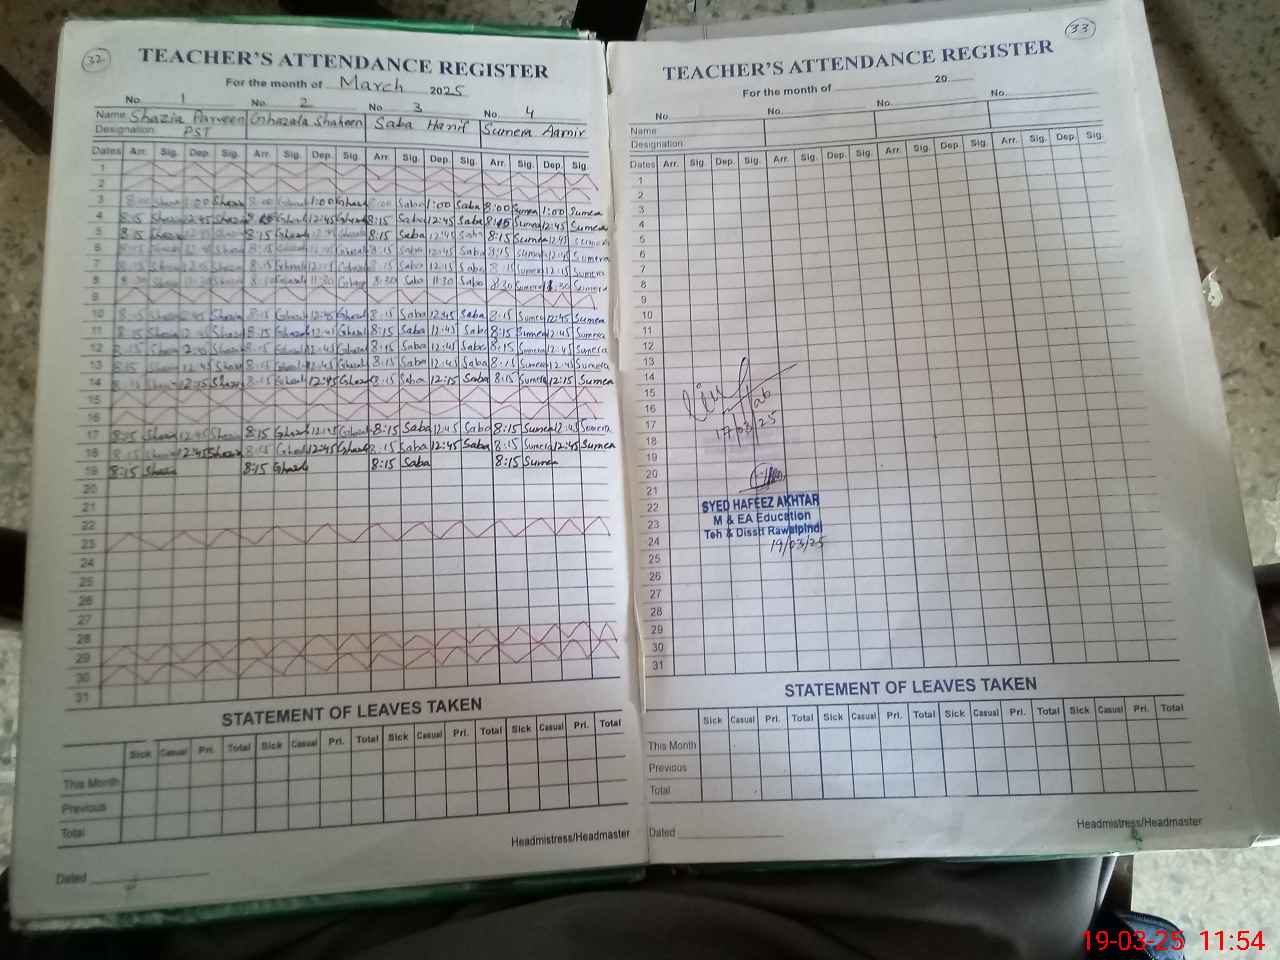 32
TEACHER'S ATTENDANCE REGISTER
For the month of March 2025
No. 1 No. 2 No. 3 No. 4
Name Shazia Parveen Ghazala Shaheen Saba Hanif Sumera Aamir
Designation PST
Dates Arr. Sig. Dep. Sig. Arr. Sig. Dep. Sig. Arr. Sig. Dep. Sig. Arr. Sig. Dep. Sig.
1
2
3 8:00 1:00 8:00 1:00 8:00 Saba 1:00 Saba 8:00 Sumera 1:00 Sumera
4 8:15 12:45 12:45 8:15 Saba 12:45 Saba 8:15 Sumera 12:45 Sumera
5 8:15 8:15 8:15 Saba 12:45 Saba 8:15 Sumera 12:45 Sumera
6 8:15 8:15 Saba 12:45 Saba 8:15 Sumera 12:45 Sumera
7 8:15 8:15 12:15 8:15 Saba 12:15 Saba 8:15 Sumera 12:15 Sumera
8 8:30 11:30 8:30 11:30 8:30 Saba 11:30 Saba 8:30 Sumera 11:30 Sumera
9
10 8:15 12:45 8:15 12:45 8:15 Saba 12:45 Saba 8:15 Sumera 12:45 Sumera
11 8:15 12:45 8:15 12:45 8:15 Saba 12:45 Saba 8:15 Sumera 12:45 Sumera
12 8:15 12:45 8:15 12:45 8:15 Saba 12:45 Saba 8:15 Sumera 12:45 Sumera
13 8:15 12:45 8:15 12:45 8:15 Saba 12:45 Saba 8:15 Sumera 12:45 Sumera
14 8:15 12:15 8:15 12:15 8:15 Saba 12:15 Saba 8:15 Sumera 12:15 Sumera
15
16
17 8:15 12:45 8:15 12:45 8:15 Saba 12:45 Saba 8:15 Sumera 12:45 Sumera
18 8:15 12:45 8:15 12:45 8:15 Saba 12:45 Saba 8:15 Sumera 12:45 Sumera
19 8:15 8:15 8:15 Saba 8:15 Sumera
20
21
22
23
24
25
26
27
28
29
30
31
STATEMENT OF LEAVES TAKEN
Sick Casual Pri. Total Sick Casual Pri. Total Sick Casual Pri. Total Sick Casual Pri. Total
This Month
Previous
Total
Headmistress/Headmaster
Dated
33
TEACHER'S ATTENDANCE REGISTER
For the month of 20
No. No. No. No.
Name
Designation
Dates Arr. Sig. Dep. Sig. Arr. Sig. Dep. Sig. Arr. Sig. Dep. Sig. Arr. Sig. Dep. Sig.
1
2
3
4
5
6
7
8
9
10
11
12
13
14
15
16
17 17/03/25
18
19
20
21
22 SYED HAFEEZ AKHTAR
23 M & EA Education
24 Teh & Disstt Rawalpindi
19/03/25
25
26
27
28
29
30
31
STATEMENT OF LEAVES TAKEN
Sick Casual Pri. Total Sick Casual Pri. Total Sick Casual Pri. Total Sick Casual Pri. Total
This Month
Previous
Total
Headmistress/Headmaster
Dated
19-03-25 11:54